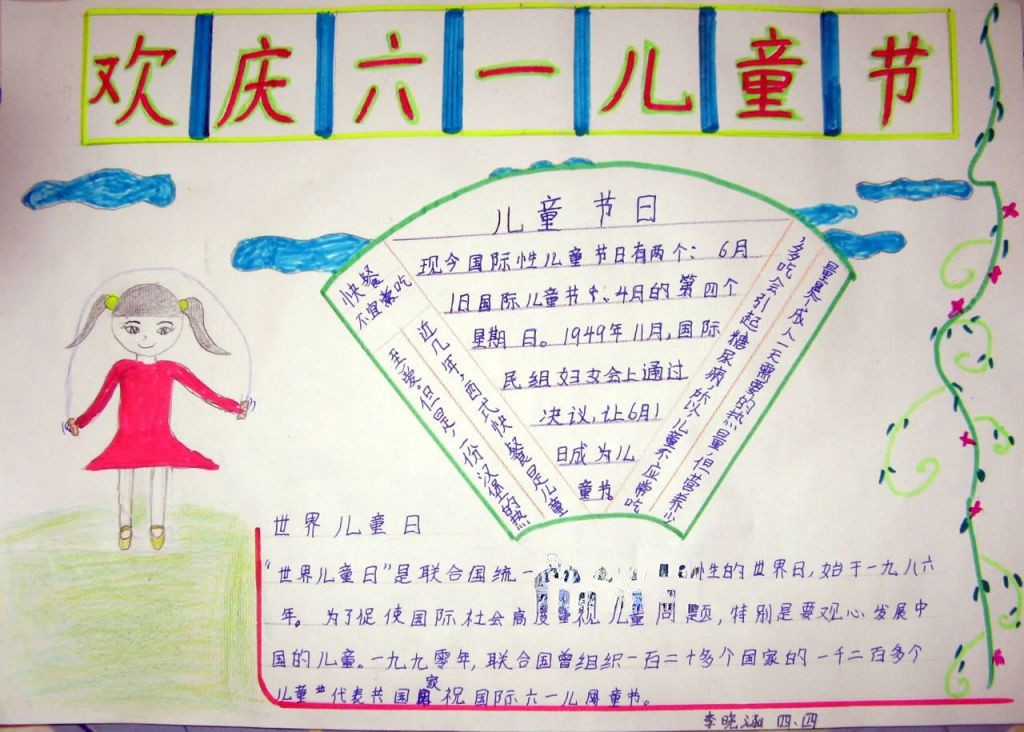 欢庆六一儿童节
儿童节日
现今国际性儿童节日有两个:6月
1日国际儿童节 4月的第四个
星期日。1949年11月,国际
民组妇女会上通过
决议,让6月1
日成为儿
童节
快餐
不宜常吃
近几年,西式快餐是儿童
至爱。但是,一份汉堡的热
量是成人一天需要的热量,但营养少
多吃会引起糖尿病,所以儿童不应常吃
世界儿童日
“世界儿童日”是联合国统一 性的世界日,始于一九八六
年。为了促使国际社会高度重视儿童问题,特别是要观心发展中
国的儿童。一九九零年,联合国曾组织一百二十多个国家的一千二百多个
儿童 代表共国家祝国际六一儿 童节。
李晓涵 四、四